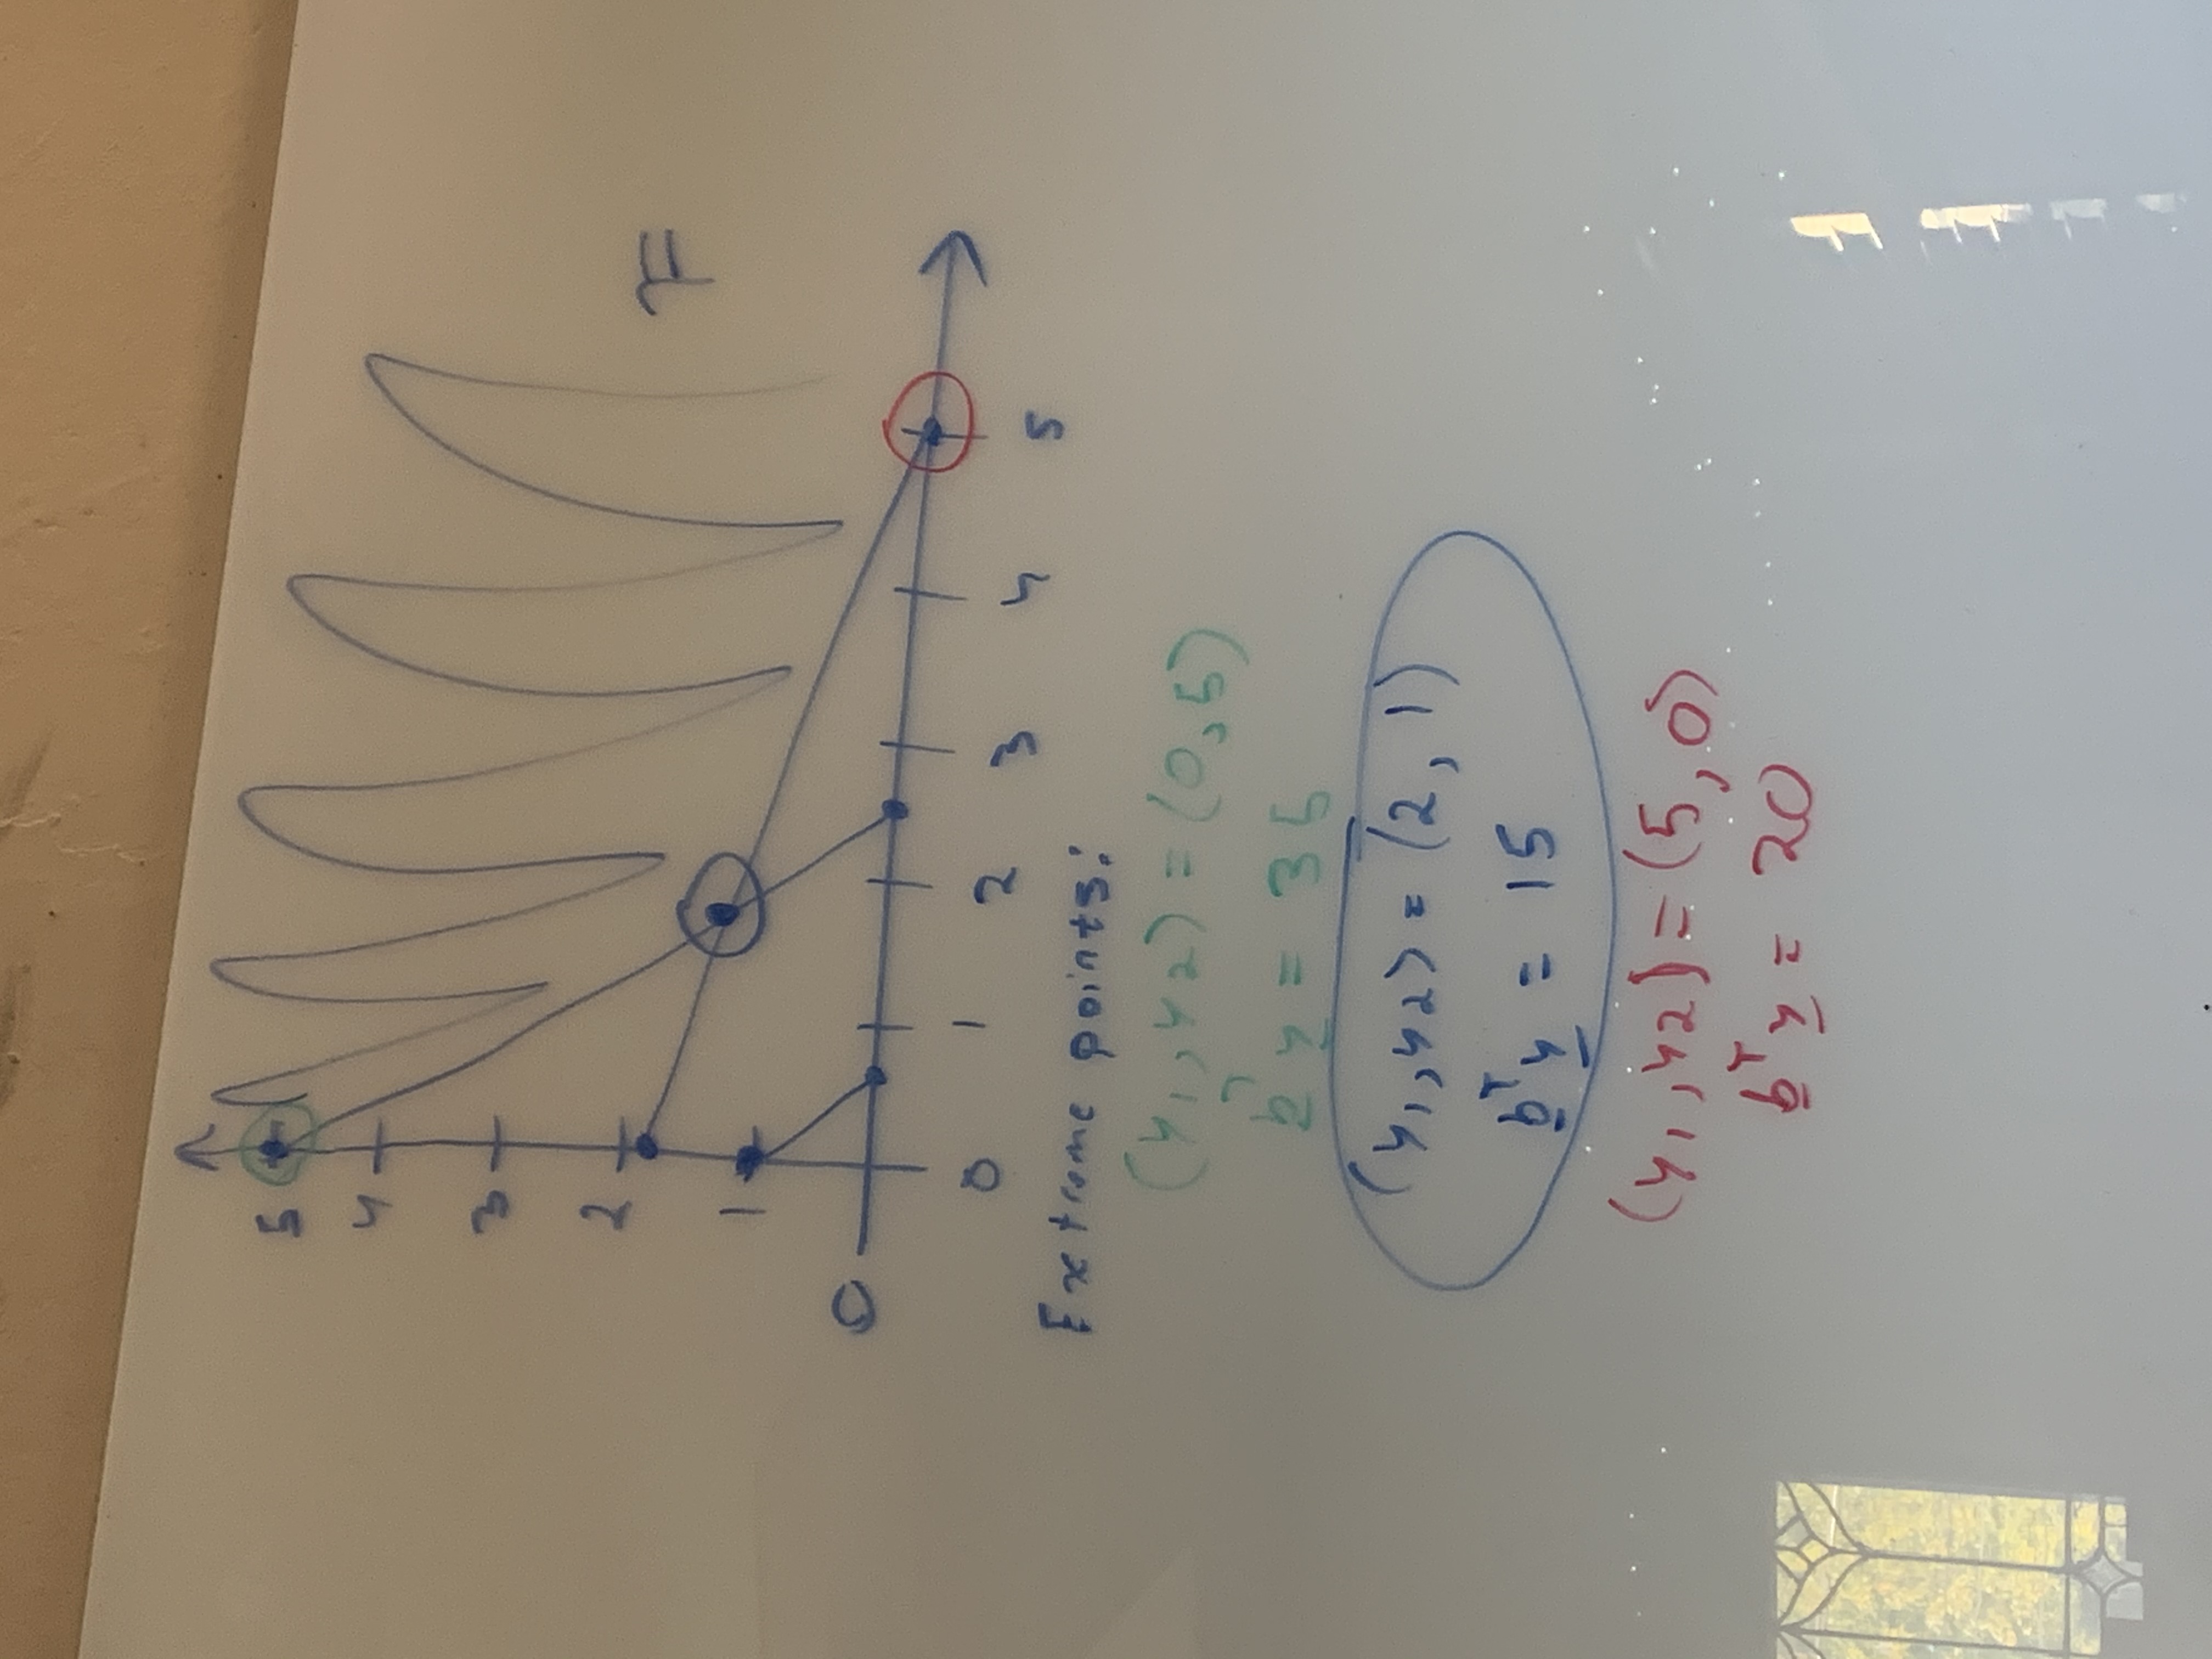 5
4
3
2
1
0
F
0 1 2 3 4 5
Extreme points:
(y₁, y₂) = (0, 5)
bᵀy = 35
(y₁, y₂) = (2, 1)
bᵀy = 15
(y₁, y₂) = (5, 0)
bᵀy = 20